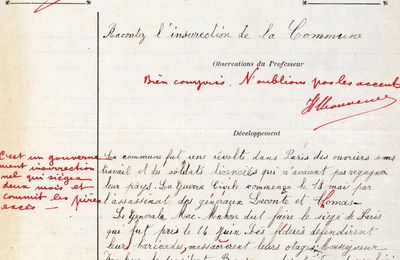 Racontez l'insurrection de la Commune
Observations du Professeur
Bien compris. N'oublions pas les accents
Développement
C'est un gouverne
ment insurrection
nel qui siégea
deux mois et
commit les pires
excès
La commune fut une révolte dans Paris des ouvriers sans
travail et des soldats licenciés qui n'avaient pas regagner
leur pays. La Guerre Civile commença le 18 mai par
l'assassinat des généraux Leconte et Thomas.
Le Générale Mac-Mahon dut faire le siège de Paris
qui fut pris le 14 Juin. Les fédérés défendirent
leurs baricades, massacrèrent leurs otages